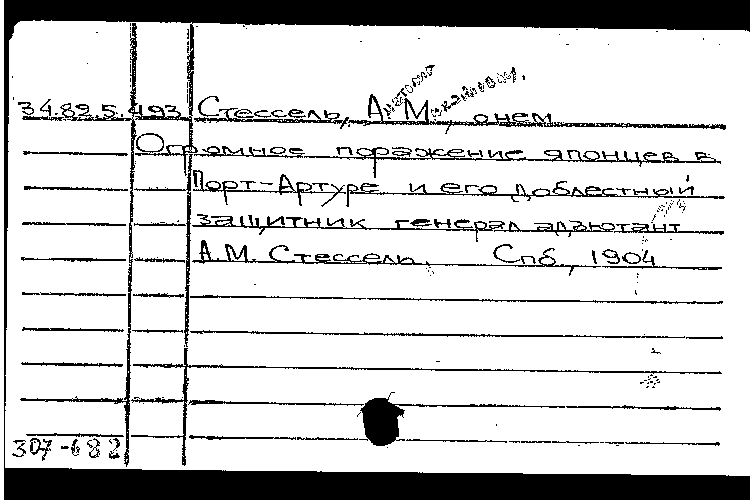 Анатолий Михайлович
34.82.5.493 Стессель, А.М., о нем
Огромное поражение японцев в
Порт-Артуре и его доблестный
защитник генерал адъютант
А.М. Стессель. Спб., 1904
307-682